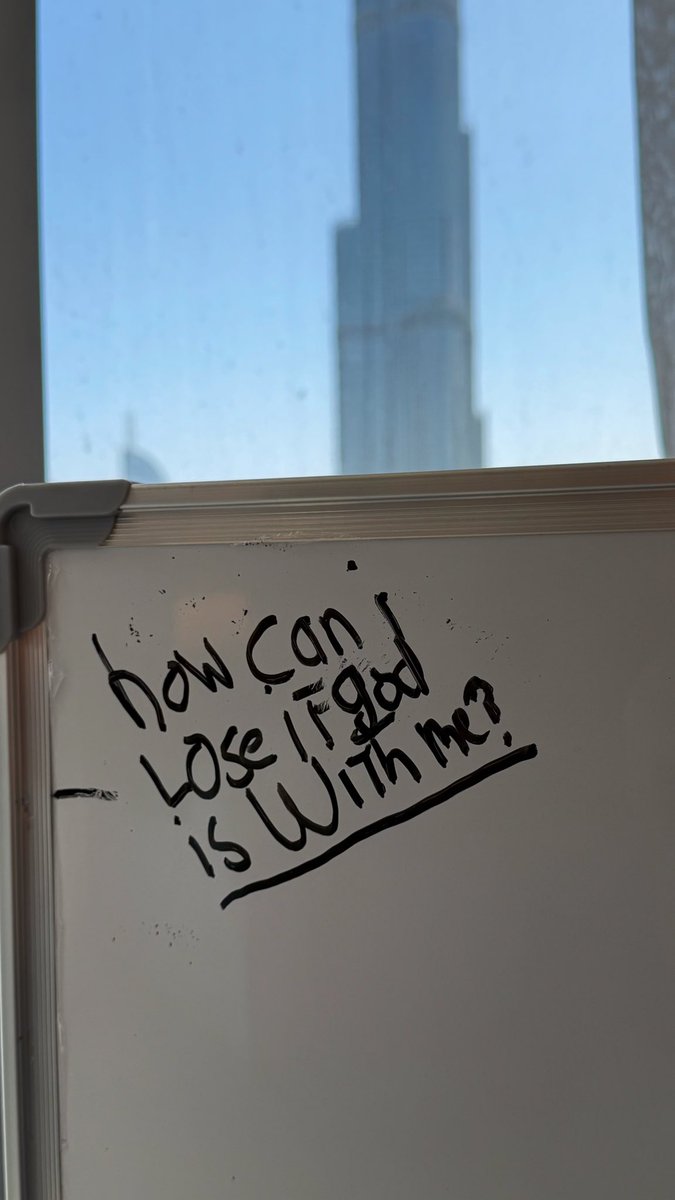 how can I
Lose if god
is With me?